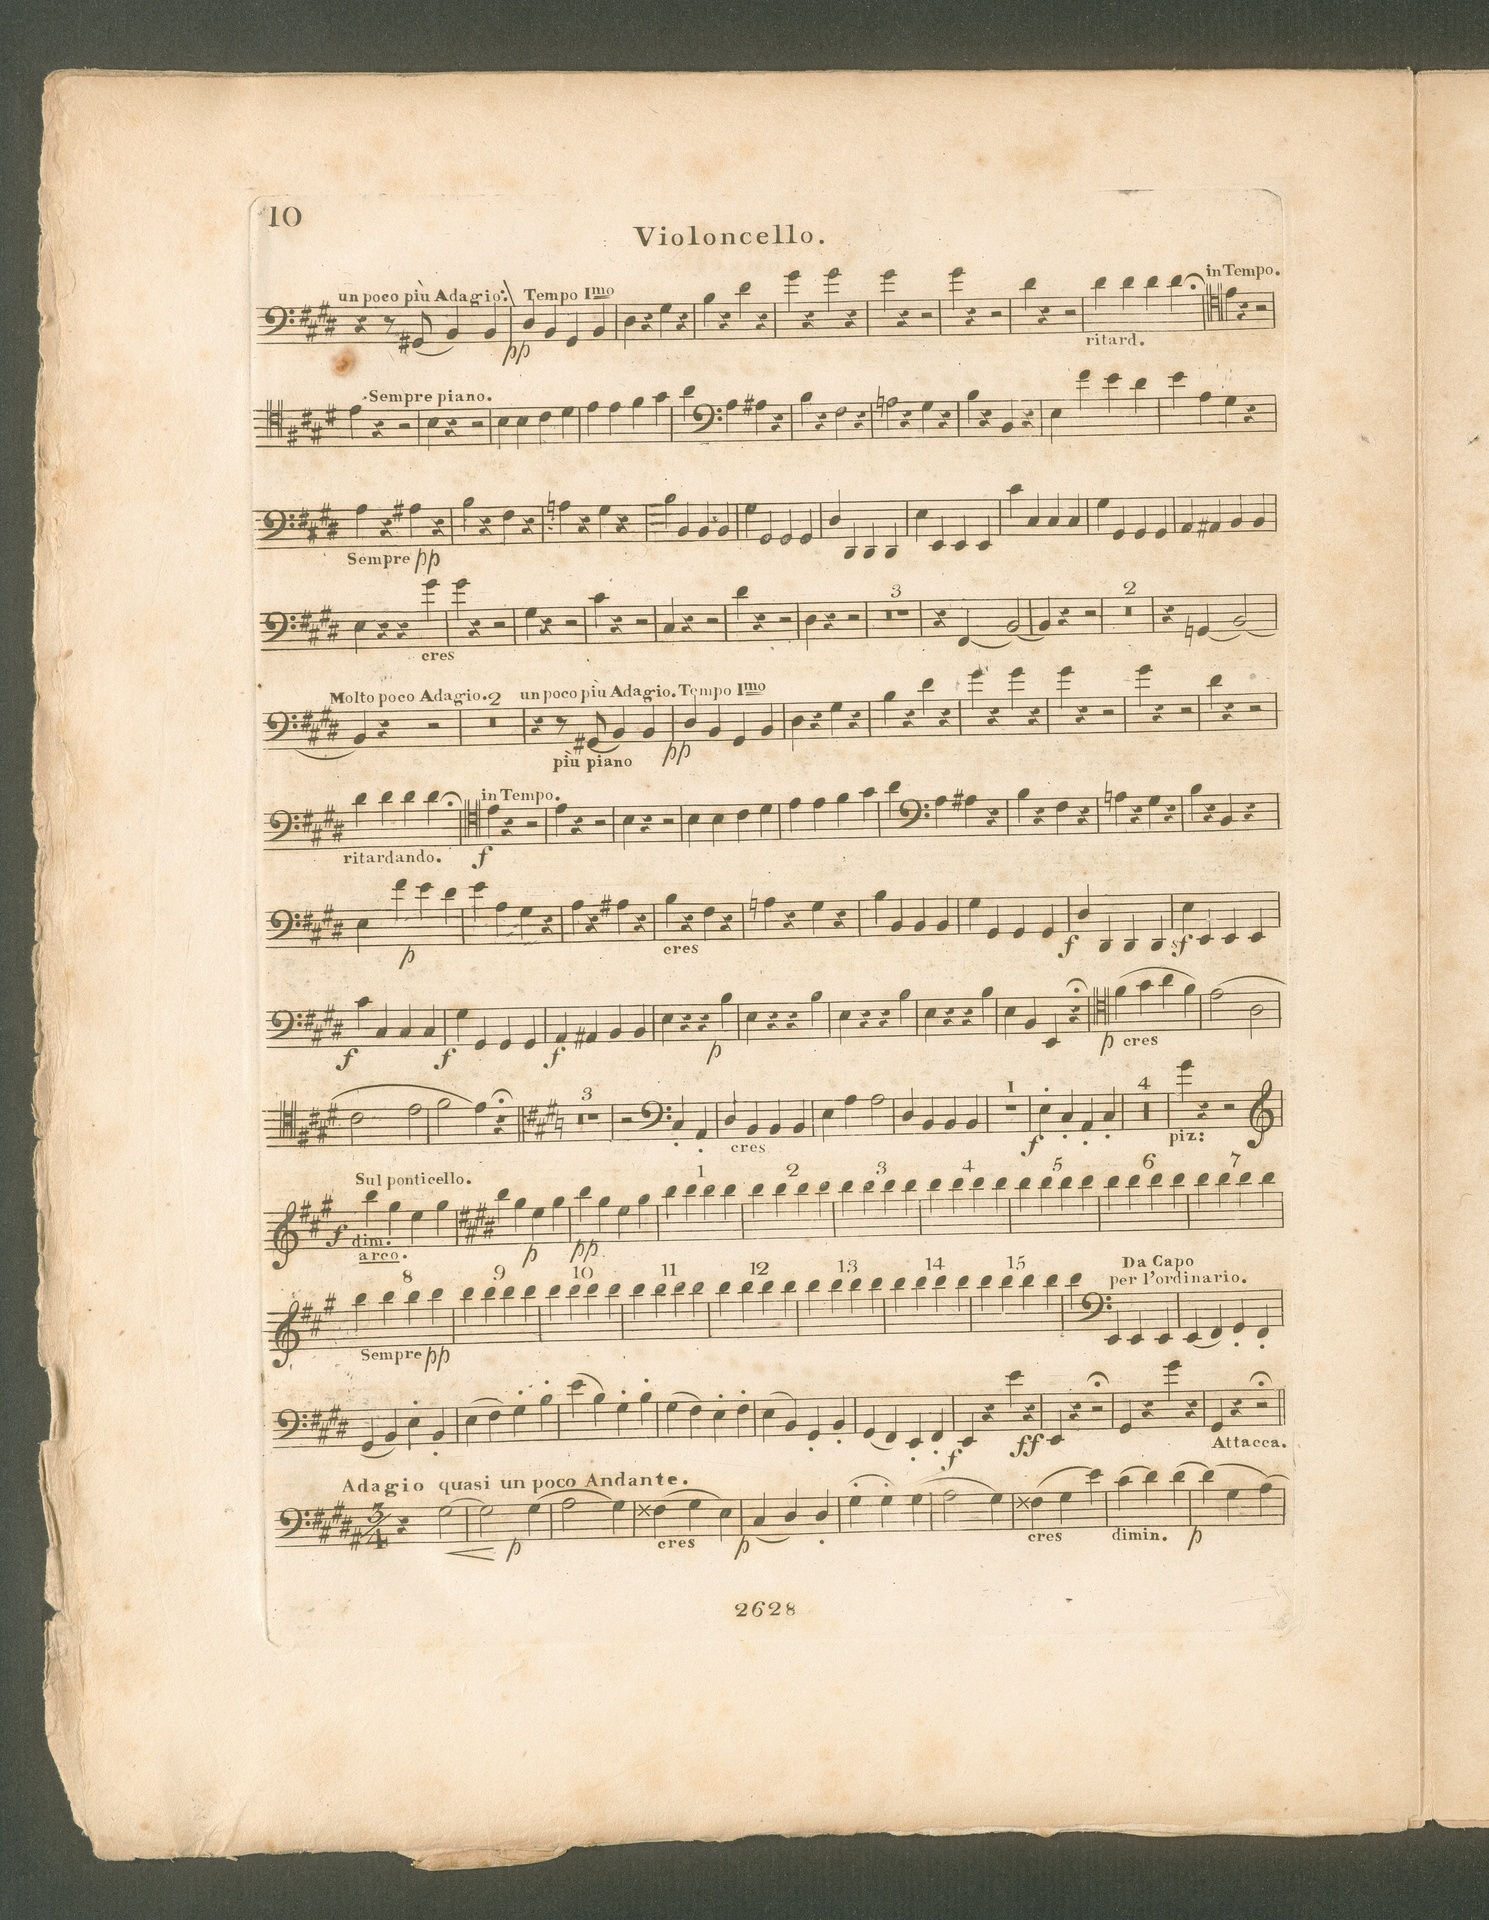 10
Violoncello.
un poco più Adagio: Tempo Imo in Tempo.
pp ritard.
Sempre piano.
Sempre pp
3 2
cres
Molto poco Adagio. 2 un poco più Adagio. Tempo Imo
più piano pp
in Tempo.
ritardando. f
p cres f sf
f f f p p cres
3 1 4
cres f piz:
Sul ponticello. 1 2 3 4 5 6 7
f dim. p pp
arco.
8 9 10 11 12 13 14 15 Da Capo
per l'ordinario.
Sempre pp
f ff Attacca.
Adagio quasi un poco Andante.
3/4
p cres p cres dimin. p
2628